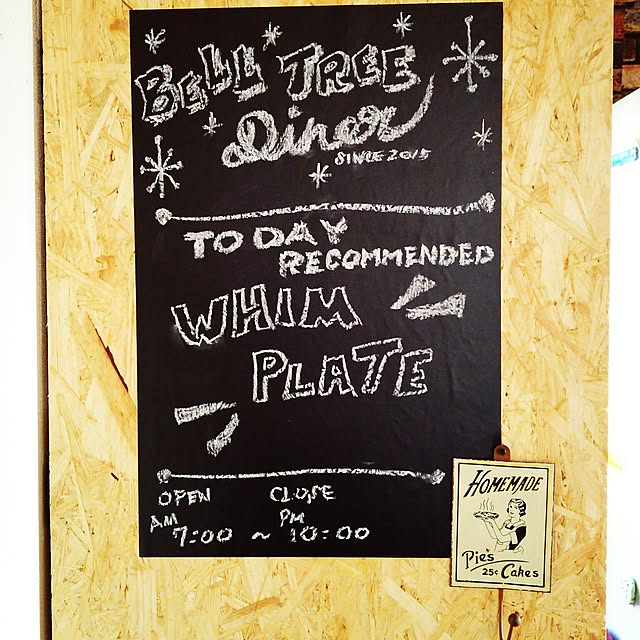 BELL TREE
Diner
SINCE 2015
TODAY
RECOMMENDED
WHIM
PLATE
OPEN CLOSE
AM PM
7:00 ~ 10:00
HOMEMADE
Pie's
25¢ Cakes